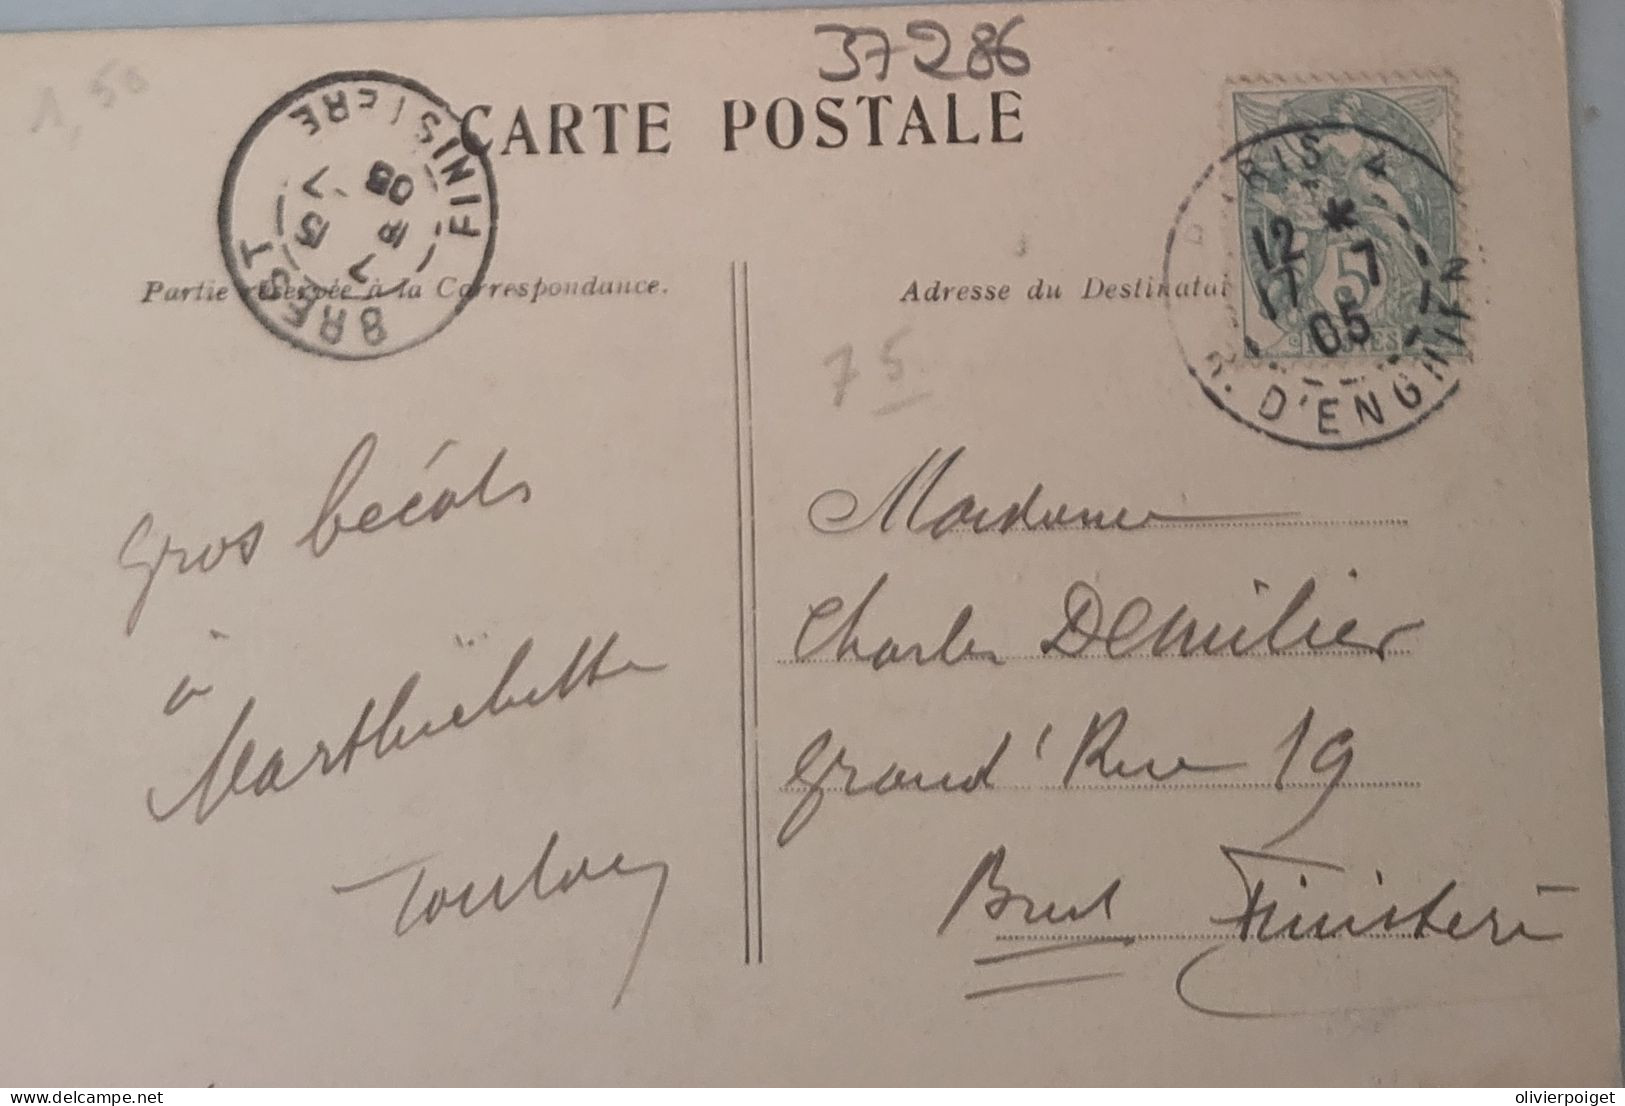 1,50
37286
CARTE POSTALE
BREST FINISTERE
7 13
18 7
05
PARIS 4
12 * 17 7 05
R. D'ENGHIEN
5
Partie réservée à la Correspondance.
Adresse du Destinatai
75
Gros bécots
à
Marthuebette
Toulouy
Madame
Charles Demilier
Grand' Rue 19
Brest Finistère
olivierpoiget